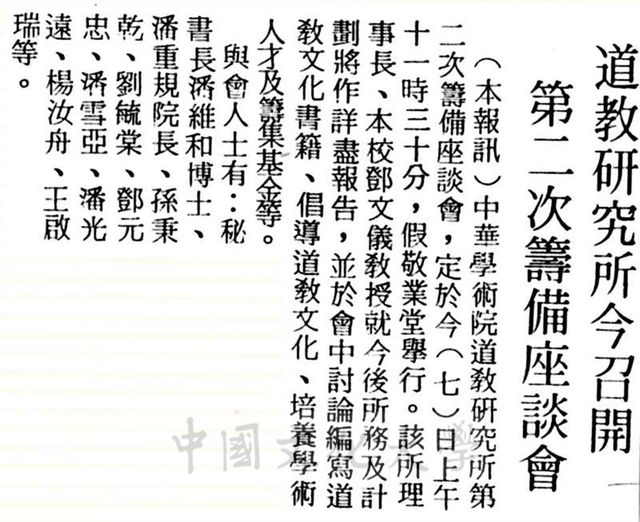 道教研究所今召開
第二次籌備座談會
（本報訊）中華學術院道教研究所第
二次籌備座談會，定於今（七）日上午
十一時三十分，假敬業堂舉行。該所理
事長、本校鄧文儀教授就今後所務及計
劃將作詳盡報告，並於會中討論編寫道
教文化書籍、倡導道教文化、培養學術
人才及籌集基金等。
與會人士有：秘
書長潘維和博士、
潘重規院長、孫秉
乾、劉毓棠、鄧元
忠、潘雪亞、潘光
遠、楊汝舟、王啟
瑞等。
中國文化大學